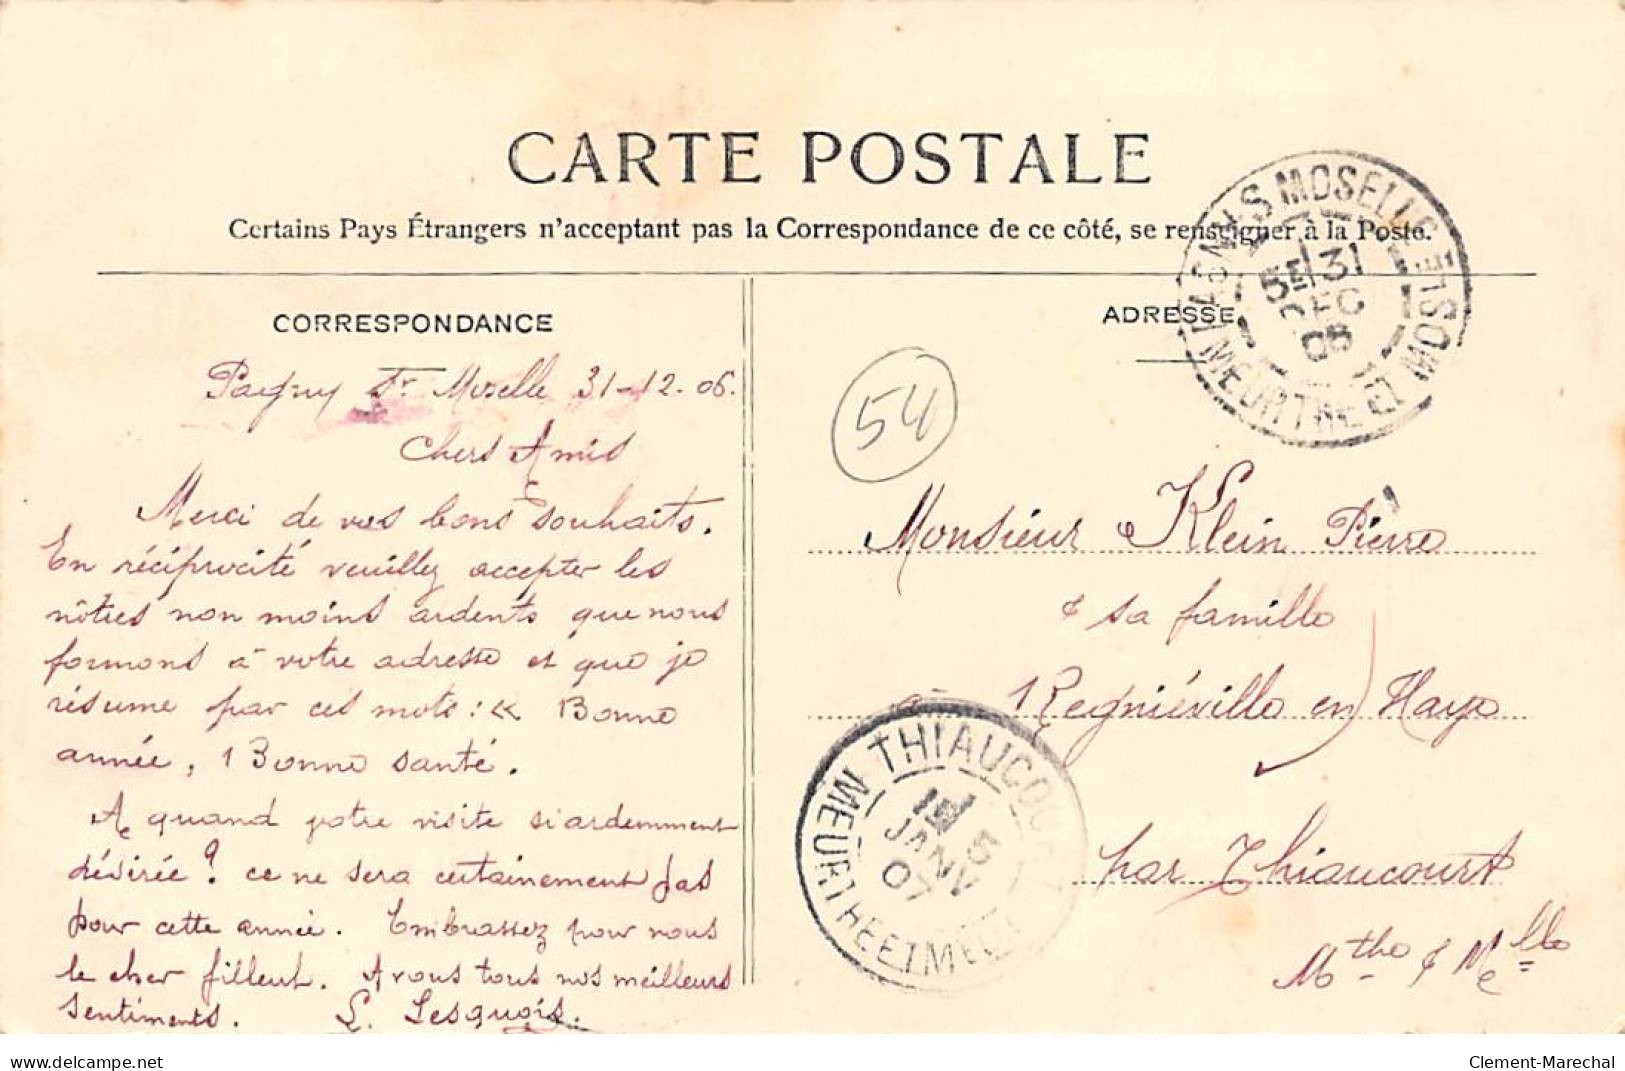 CARTE POSTALE
Certains Pays Étrangers n'acceptant pas la Correspondance de ce côté, se renseigner à la Poste.
CORRESPONDANCE
Pagny Sr Moselle 31-12-06.
Chers Amis
Merci de vos bons souhaits.
En réciprocité veuillez accepter les
nôtres non moins ardents que nous
formons à votre adresse et que je
résume par ces mots : « Bonne
année, Bonne santé.
A quand votre visite si ardemment
désirée ? ce ne sera certainement pas
pour cette année. Embrassez pour nous
le cher filleul. A vous tous nos meilleurs
sentiments. L. Lesquois.
ADRESSE
S MOSELLE
MEURTHE ET MOSELLE
5E 31
DEC
06
54
Monsieur Klein Pierre
& sa famille
à Regniéville en Haye
par Thiaucourt
Mthe & Melle
THIAUCOURT
MEURTHE ET MELLE
JANV
07
delcampe.net
Clement-Marechal